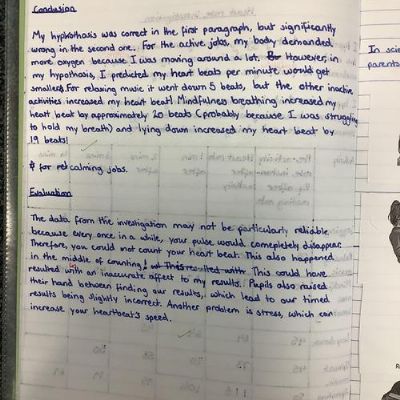 Conclusion
My hypothosis was correct in the first paragraph, but significantly
wrong in the second one. For the active jobs, my body demanded
more oxygen because I was moving around a lot. However, in
my hypothosis, I predicted my heart beats per minute would get
smaller. For relaxing music it went down 5 beats, but the other inactive
activities increased my heart beat! Mindfulness breathing increased my
heart beat by approximately 20 beats (probably because I was struggling
to hold my breath) and lying down increased my heart beat by
19 beats!
for calming jobs.
Evaluation
The data from this investigation may not be particularly reliable
because every once in a while, your pulse would completely disappear.
Therefore, you could not count your heart beat. This also happened
in the middle of counting! This resulted with This could have
resulted with an inaccurate affect to my results. Pupils also raised
their hand between finding our results, which lead to our timed
results being slightly incorrect. Another problem is stress, which can
increase your heartbeat's speed.
In scie
parents